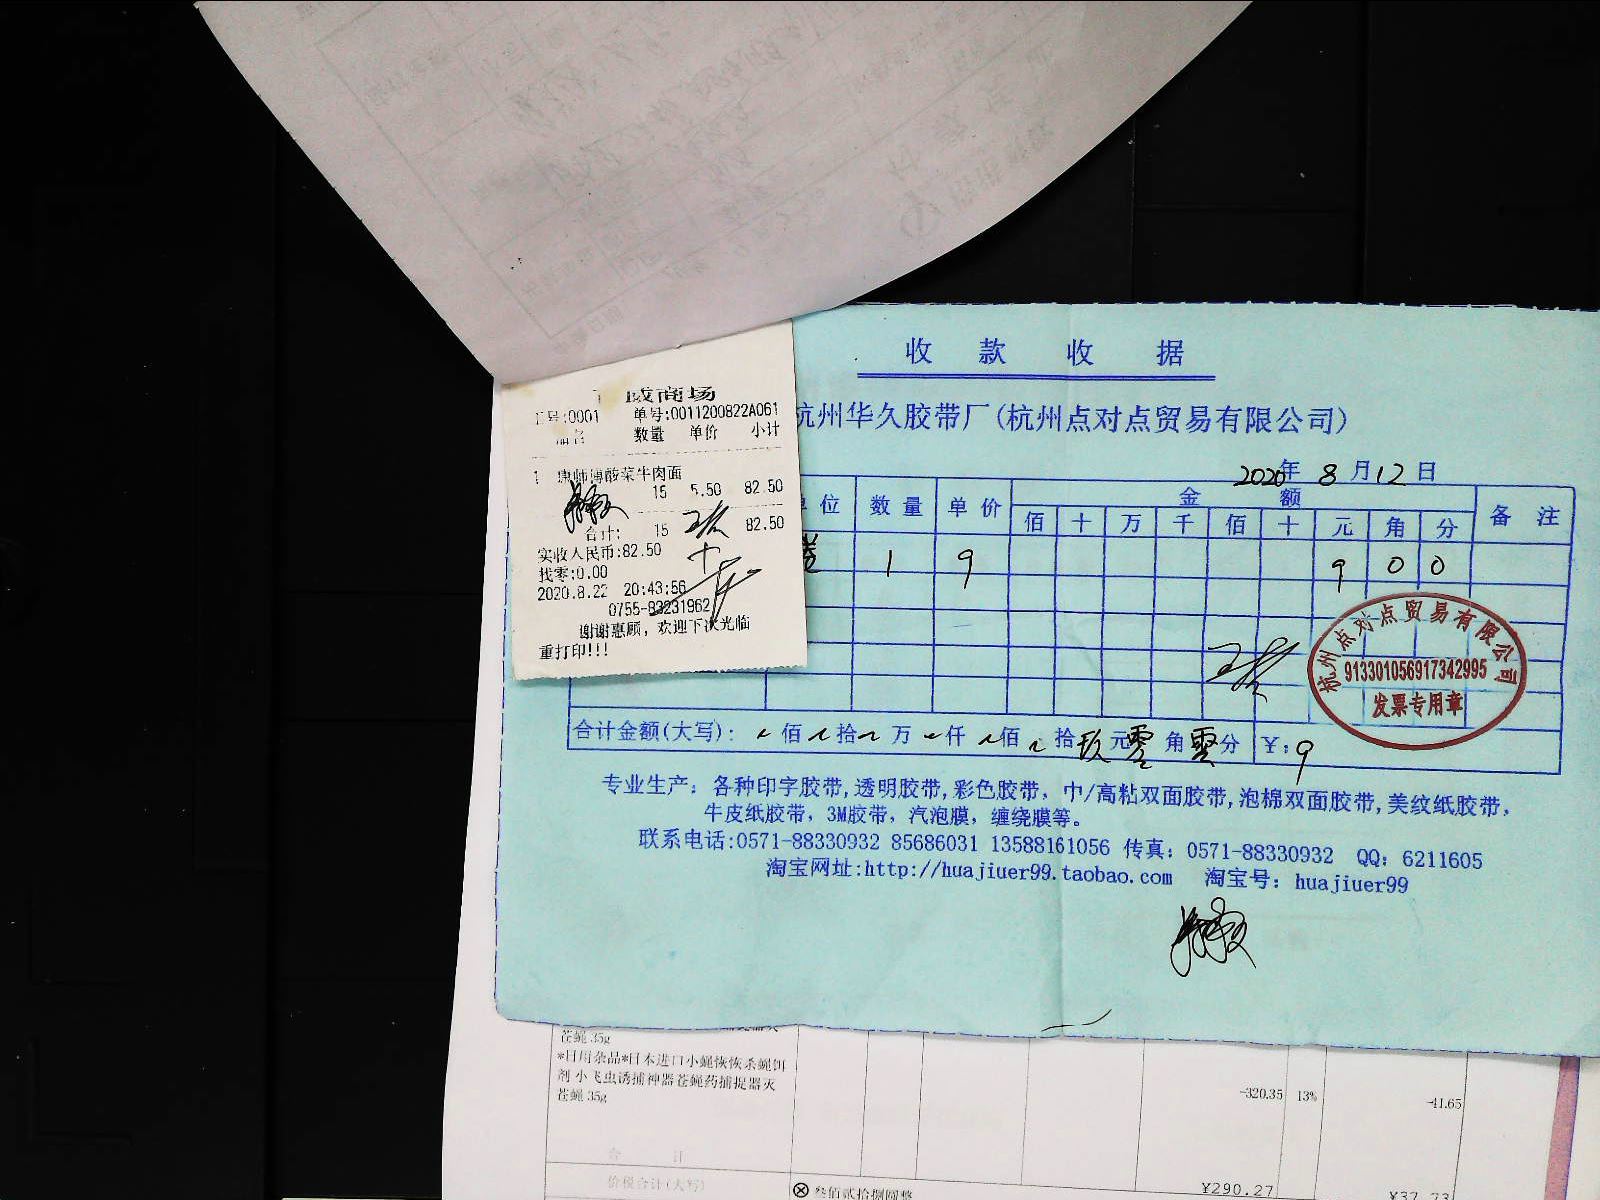 威商场
号:0001 单号:0011200822A061
数量 单价 小计
1 康师傅酸菜牛肉面
15 5.50 82.50
合计: 15 82.50
实收人民币:82.50
找零:0.00
2020.8.22 20:43:56
0755-83231962
谢谢惠顾，欢迎下次光临
重打印!!!
收款收据
杭州华久胶带厂(杭州点对点贸易有限公司)
2020年8月12日
单位 数量 单价 金额 备注
佰 十 万 千 佰 十 元 角 分
卷 1 9 9 0 0
杭州点对点贸易有限公司
913301056917342995
发票专用章
合计金额(大写): 佰 拾 万 仟 佰 拾 玖 元 零 角 零 分 ¥:9
专业生产: 各种印字胶带,透明胶带,彩色胶带, 中/高粘双面胶带,泡棉双面胶带,美纹纸胶带,
牛皮纸胶带, 3M胶带, 汽泡膜, 缠绕膜等。
联系电话:0571-88330932 85686031 13588161056 传真: 0571-88330932 QQ: 6211605
淘宝网址:http://huajiuer99.taobao.com 淘宝号: huajiuer99
苍蝇 35g
*日用杂品*日本进口小蝇恢恢杀蝇饵
剂 小飞虫诱捕神器苍蝇药捕捉器灭
苍蝇 35g -320.35 13% -41.65
合 计
价税合计(大写) ⊗ 叁佰贰拾捌圆整 ¥290.27 ¥37.73